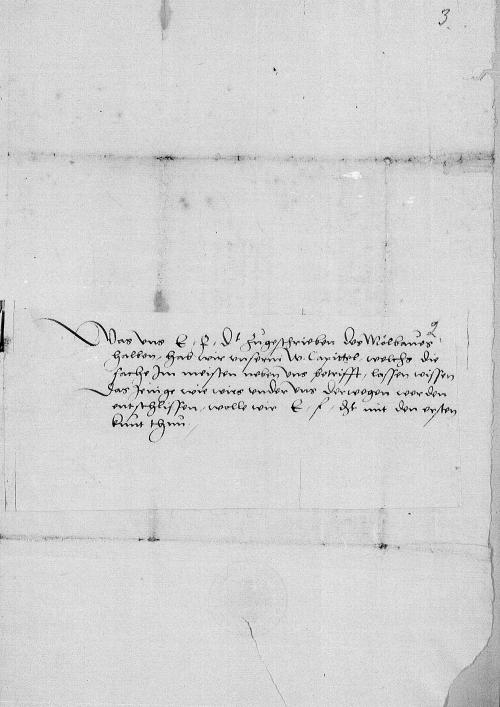 3
2
Was uns E. F. Dt zugeschrieben des Mölbaues
halben, hab wir unserm W. Capittel, welchs die
sache im meisten neben uns betrifft, lassen wissen
Das jenige wie wirs under uns derwegen werden
entschlissen, wolle wir E. f. dt mit den ersten
kunt thun.